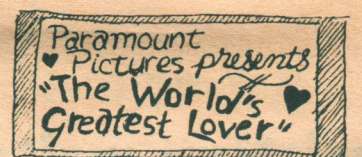 Paramount
Pictures presents
"The World's
Greatest Lover"